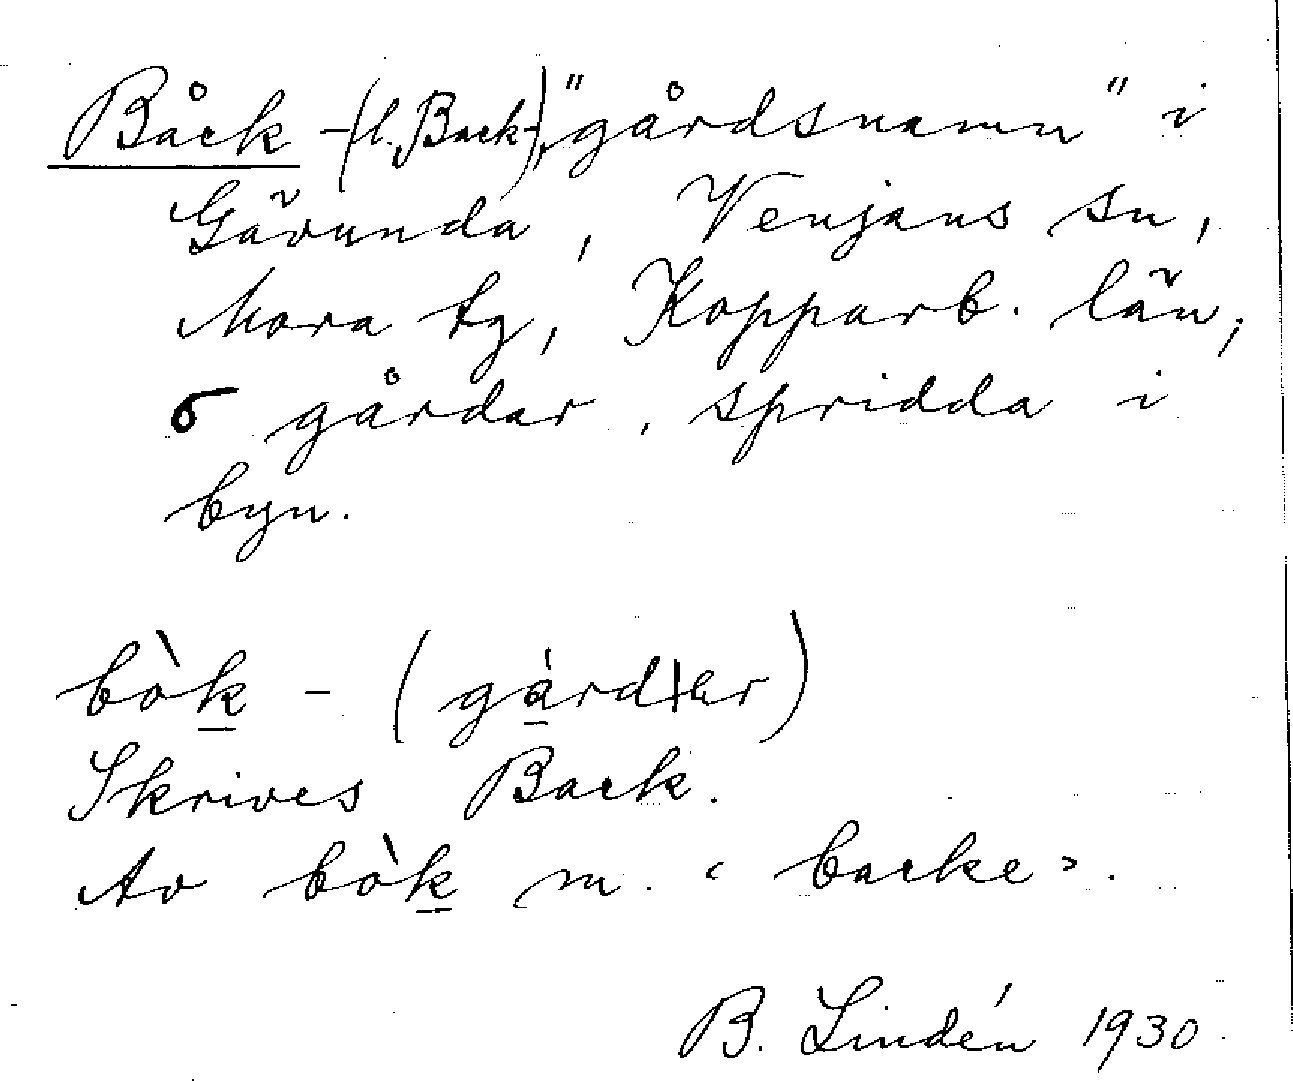 Båck -(l. Back-), "gårdsnamn" i
Gävunda, Venjans sn,
Mora tg, Kopparb. län;
6 gårdar, spridda i
byn.
bòk - (gàrdar)
Skrives Back.
Av bòk m. ‹ backe ›.
B. Lindén 1930.